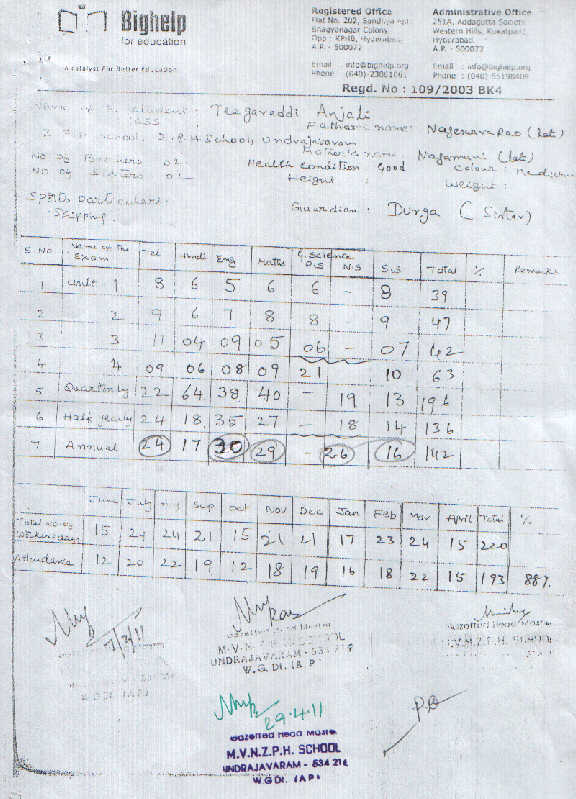 Bighelp
for education
A Catalyst For Better Education
Registered Office
Flat No. 202,
Bhagyanagar Colony
Opp : KPHB, Hyderabad
A.P. - 500072
Email : info@bighelp.org
Phone :
Administrative Office
251A, Addagutta Society
Western Hills, Kukatpally
Hyderabad.
A.P. - 500072
Email : info@bighelp.org
Phone : (040)
Regd. No : 109/2003 BK4
Name of student : Teegareddi Anjali
Class : Father's name : Nageswara Rao (Lat)
Z.P.H School, Undrajavaram
Mother's name : Nagamani (Lat)
No of Brothers 02 Health condition Good Colour : Medium
No of Sisters 01 Height : Weight :
Sports Particulars :
Skipping. Guardian : Durga (Sister)
S.No Name of the Exam Tel Hindi Eng Maths G. Science P.S N.S S.S Total % Remarks
1 Unit 1 8 6 5 6 6 8 39
2 2 9 6 7 8 8 9 47
3 3 11 04 09 05 06 - 07 42
4 4 09 06 08 09 21 10 63
5 Quarterly 22 64 38 40 - 19 13 196
6 Half yearly 24 18 35 27 - 18 14 136
7 Annual 24 17 30 29 - 26 16 142
June July Aug Sep Oct Nov Dec Jan Feb Mar April Total %
Total No of Working days 15 24 24 21 15 21 21 17 23 24 15 220
Attendance 12 20 22 19 12 18 19 16 18 22 15 193 88%
Gazetted Head Master
M.V.N.Z.P.H. SCHOOL
UNDRAJAVARAM - 534 216
W.G.DI. (A P)
Gazetted Head Master
M.V.N.Z.P.H. SCHOOL
W.G.DI. (A.P)
29.4.11
Gazetted Head Master
M.V.N.Z.P.H. SCHOOL
UNDRAJAVARAM - 534 216
W.G.DI. (A.P)